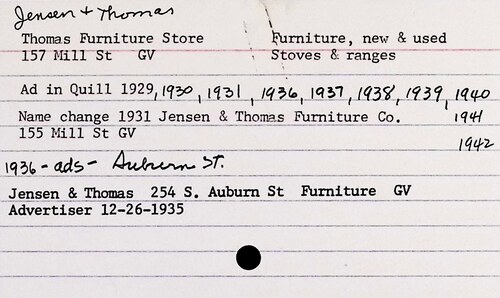 Jensen + Thomas
Thomas Furniture Store Furniture, new & used
157 Mill St GV Stoves & ranges
Ad in Quill 1929, 1930, 1931, 1936, 1937, 1938, 1939, 1940
Name change 1931 Jensen & Thomas Furniture Co. 1941
155 Mill St GV
1942
1936 - ads - Auburn St.
Jensen & Thomas 254 S. Auburn St Furniture GV
Advertiser 12-26-1935